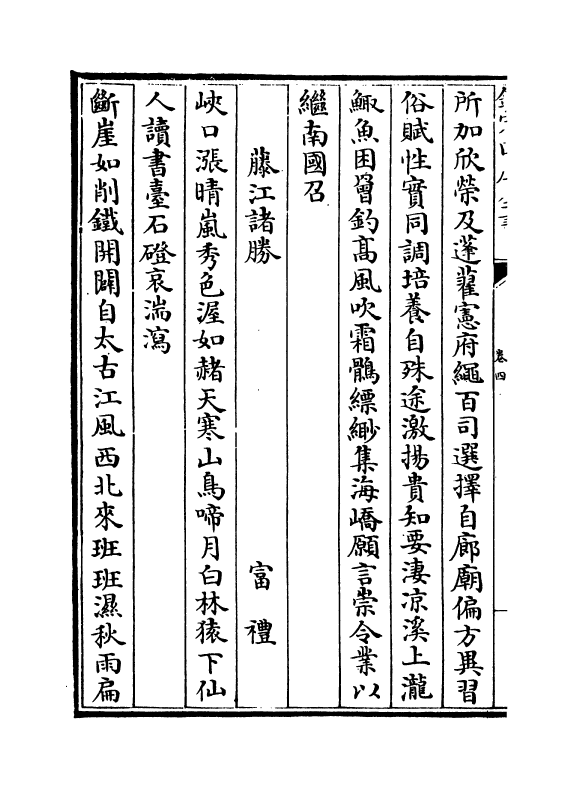 所加欣榮及蓬藋憲府繩百司選擇自廊廟偏方異習
俗賦性實同調培養自殊途激揚貴知要淒凉溪上瀧
鯫魚困罾釣髙風吹霜鶻縹緲集海嶠願言崇令業以
繼南國召
藤江諸勝　富禮
峽口漲晴嵐秀色渥如赭天寒山鳥啼月白林猿下仙
人讀書臺石磴哀湍瀉
斷崖如削鐵開闢自太古江風西北來班班濕秋雨扁
卷四